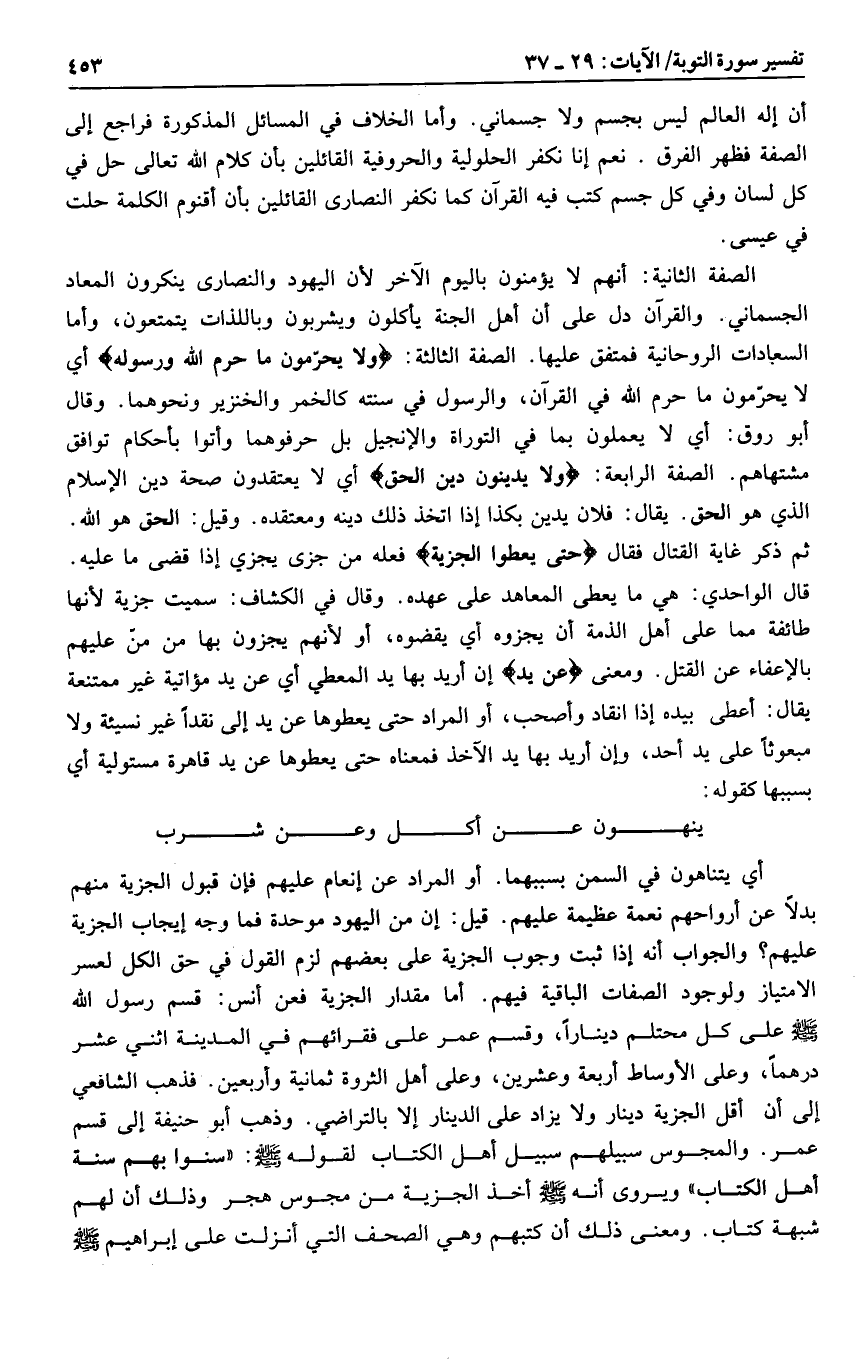 تفسير سورة التوبة/ الآيات: ٢٩ ـ ٣٧ ٤٥٣
أن إله العالم ليس بجسم ولا جسماني. وأما الخلاف في المسائل المذكورة فراجع إلى
الصفة فظهر الفرق . نعم إنا نكفر الحلولية والحروفية القائلين بأن كلام الله تعالى حل في
كل لسان وفي كل جسم كتب فيه القرآن كما نكفر النصارى القائلين بأن أقنوم الكلمة حلت
في عيسى.
الصفة الثانية: أنهم لا يؤمنون باليوم الآخر لأن اليهود والنصارى ينكرون المعاد
الجسماني. والقرآن دل على أن أهل الجنة يأكلون ويشربون وباللذات يتمتعون، وأما
السعادات الروحانية فمتفق عليها. الصفة الثالثة: ﴿ولا يحرّمون ما حرم الله ورسوله﴾ أي
لا يحرّمون ما حرم الله في القرآن، والرسول في سنته كالخمر والخنزير ونحوهما. وقال
أبو روق: أي لا يعملون بما في التوراة والإنجيل بل حرفوهما وأتوا بأحكام توافق
مشتهاهم. الصفة الرابعة: ﴿ولا يدينون دين الحق﴾ أي لا يعتقدون صحة دين الإسلام
الذي هو الحق. يقال: فلان يدين بكذا إذا اتخذ ذلك دينه ومعتقده. وقيل: الحق هو الله.
ثم ذكر غاية القتال فقال ﴿حتى يعطوا الجزية﴾ فعله من جزى يجزي إذا قضى ما عليه.
قال الواحدي: هي ما يعطى المعاهد على عهده. وقال في الكشاف: سميت جزية لأنها
طائفة مما على أهل الذمة أن يجزوه أي يقضوه، أو لأنهم يجزون بها من منّ عليهم
بالإعفاء عن القتل. ومعنى ﴿عن يد﴾ إن أريد بها يد المعطي أي عن يد مؤاتية غير ممتنعة
يقال: أعطى بيده إذا انقاد وأصحب، أو المراد حتى يعطوها عن يد إلى نقداً غير نسيئة ولا
مبعوثاً على يد أحد، وإن أريد بها يد الآخذ فمعناه حتى يعطوها عن يد قاهرة مستولية أي
بسببها كقوله:
ينهـــــون عـــــن أكـــــل وعـــــن شـــــرب
أي يتناهون في السمن بسببهما. أو المراد عن إنعام عليهم فإن قبول الجزية منهم
بدلاً عن أرواحهم نعمة عظيمة عليهم. قيل: إن من اليهود موحدة فما وجه إيجاب الجزية
عليهم؟ والجواب أنه إذا ثبت وجوب الجزية على بعضهم لزم القول في حق الكل لعسر
الامتياز ولوجود الصفات الباقية فيهم. أما مقدار الجزية فعن أنس: قسم رسول الله
ﷺ علـى كـل محتلـم دينـاراً، وقسـم عمـر علـى فقـرائهـم فـي المـدينـة اثنـي عشـر
درهماً، وعلى الأوساط أربعة وعشرين، وعلى أهل الثروة ثمانية وأربعين. فذهب الشافعي
إلى أن أقل الجزية دينار ولا يزاد على الدينار إلا بالتراضي. وذهب أبو حنيفة إلى قسم
عمـر. والمجـوس سبيلهـم سبيـل أهـل الكتـاب لقـولـه ﷺ: «سنـوا بهـم سنـة
أهـل الكتـاب» ويـروى أنـه ﷺ أخـذ الجـزيـة مـن مجـوس هجـر وذلـك أن لهـم
شبهـة كتـاب. ومعنـى ذلـك أن كتبهـم وهـي الصحـف التـي أنـزلـت علـى إبـراهيـم ﷺ